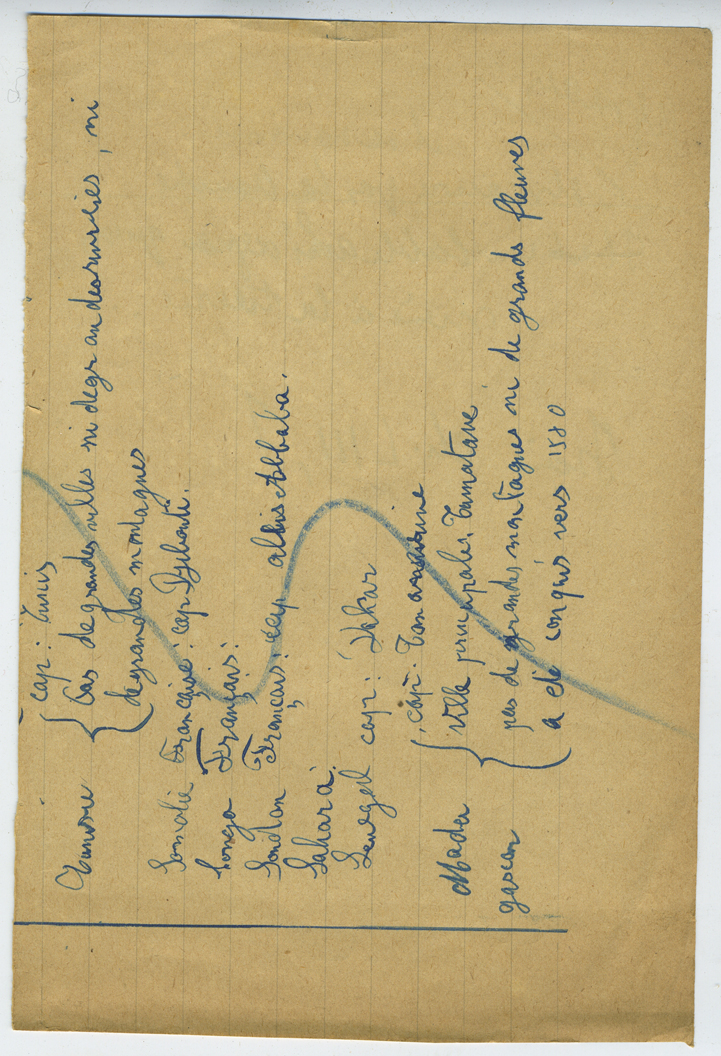 cap: Tunis
Tunisie { Pas de grandes villes ni degrandesmines, ni
de grandes montagnes
Somalie Française: cap Djibouti.
Congo Français:
Soudan Français: cap addis Abbaba.
Sahara:
Senegal cap: Dakar
cap: Tananarive
Mada { ville principales Tamatave
gascar pas de grandes montagnes ni de grands fleuves
a ete conquis vers 1580